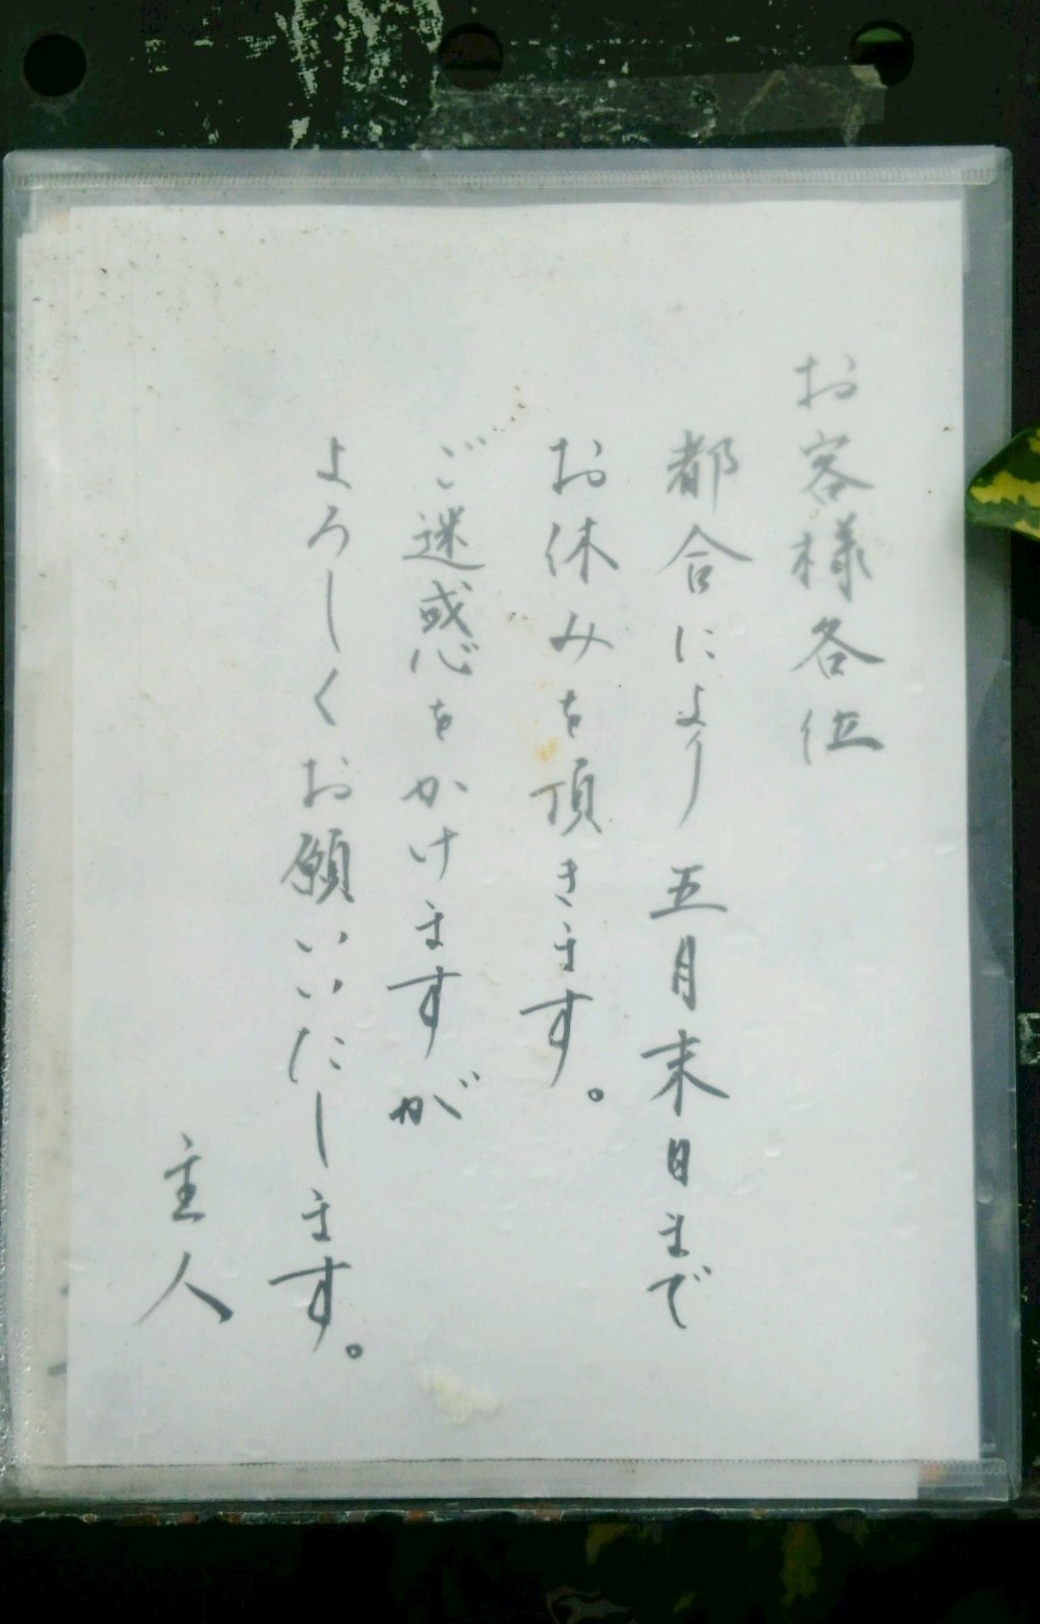 お客様各位
都合により 五月末日まで
お休みを頂きます。
ご迷惑をかけますが
よろしくお願いいたします。
主人